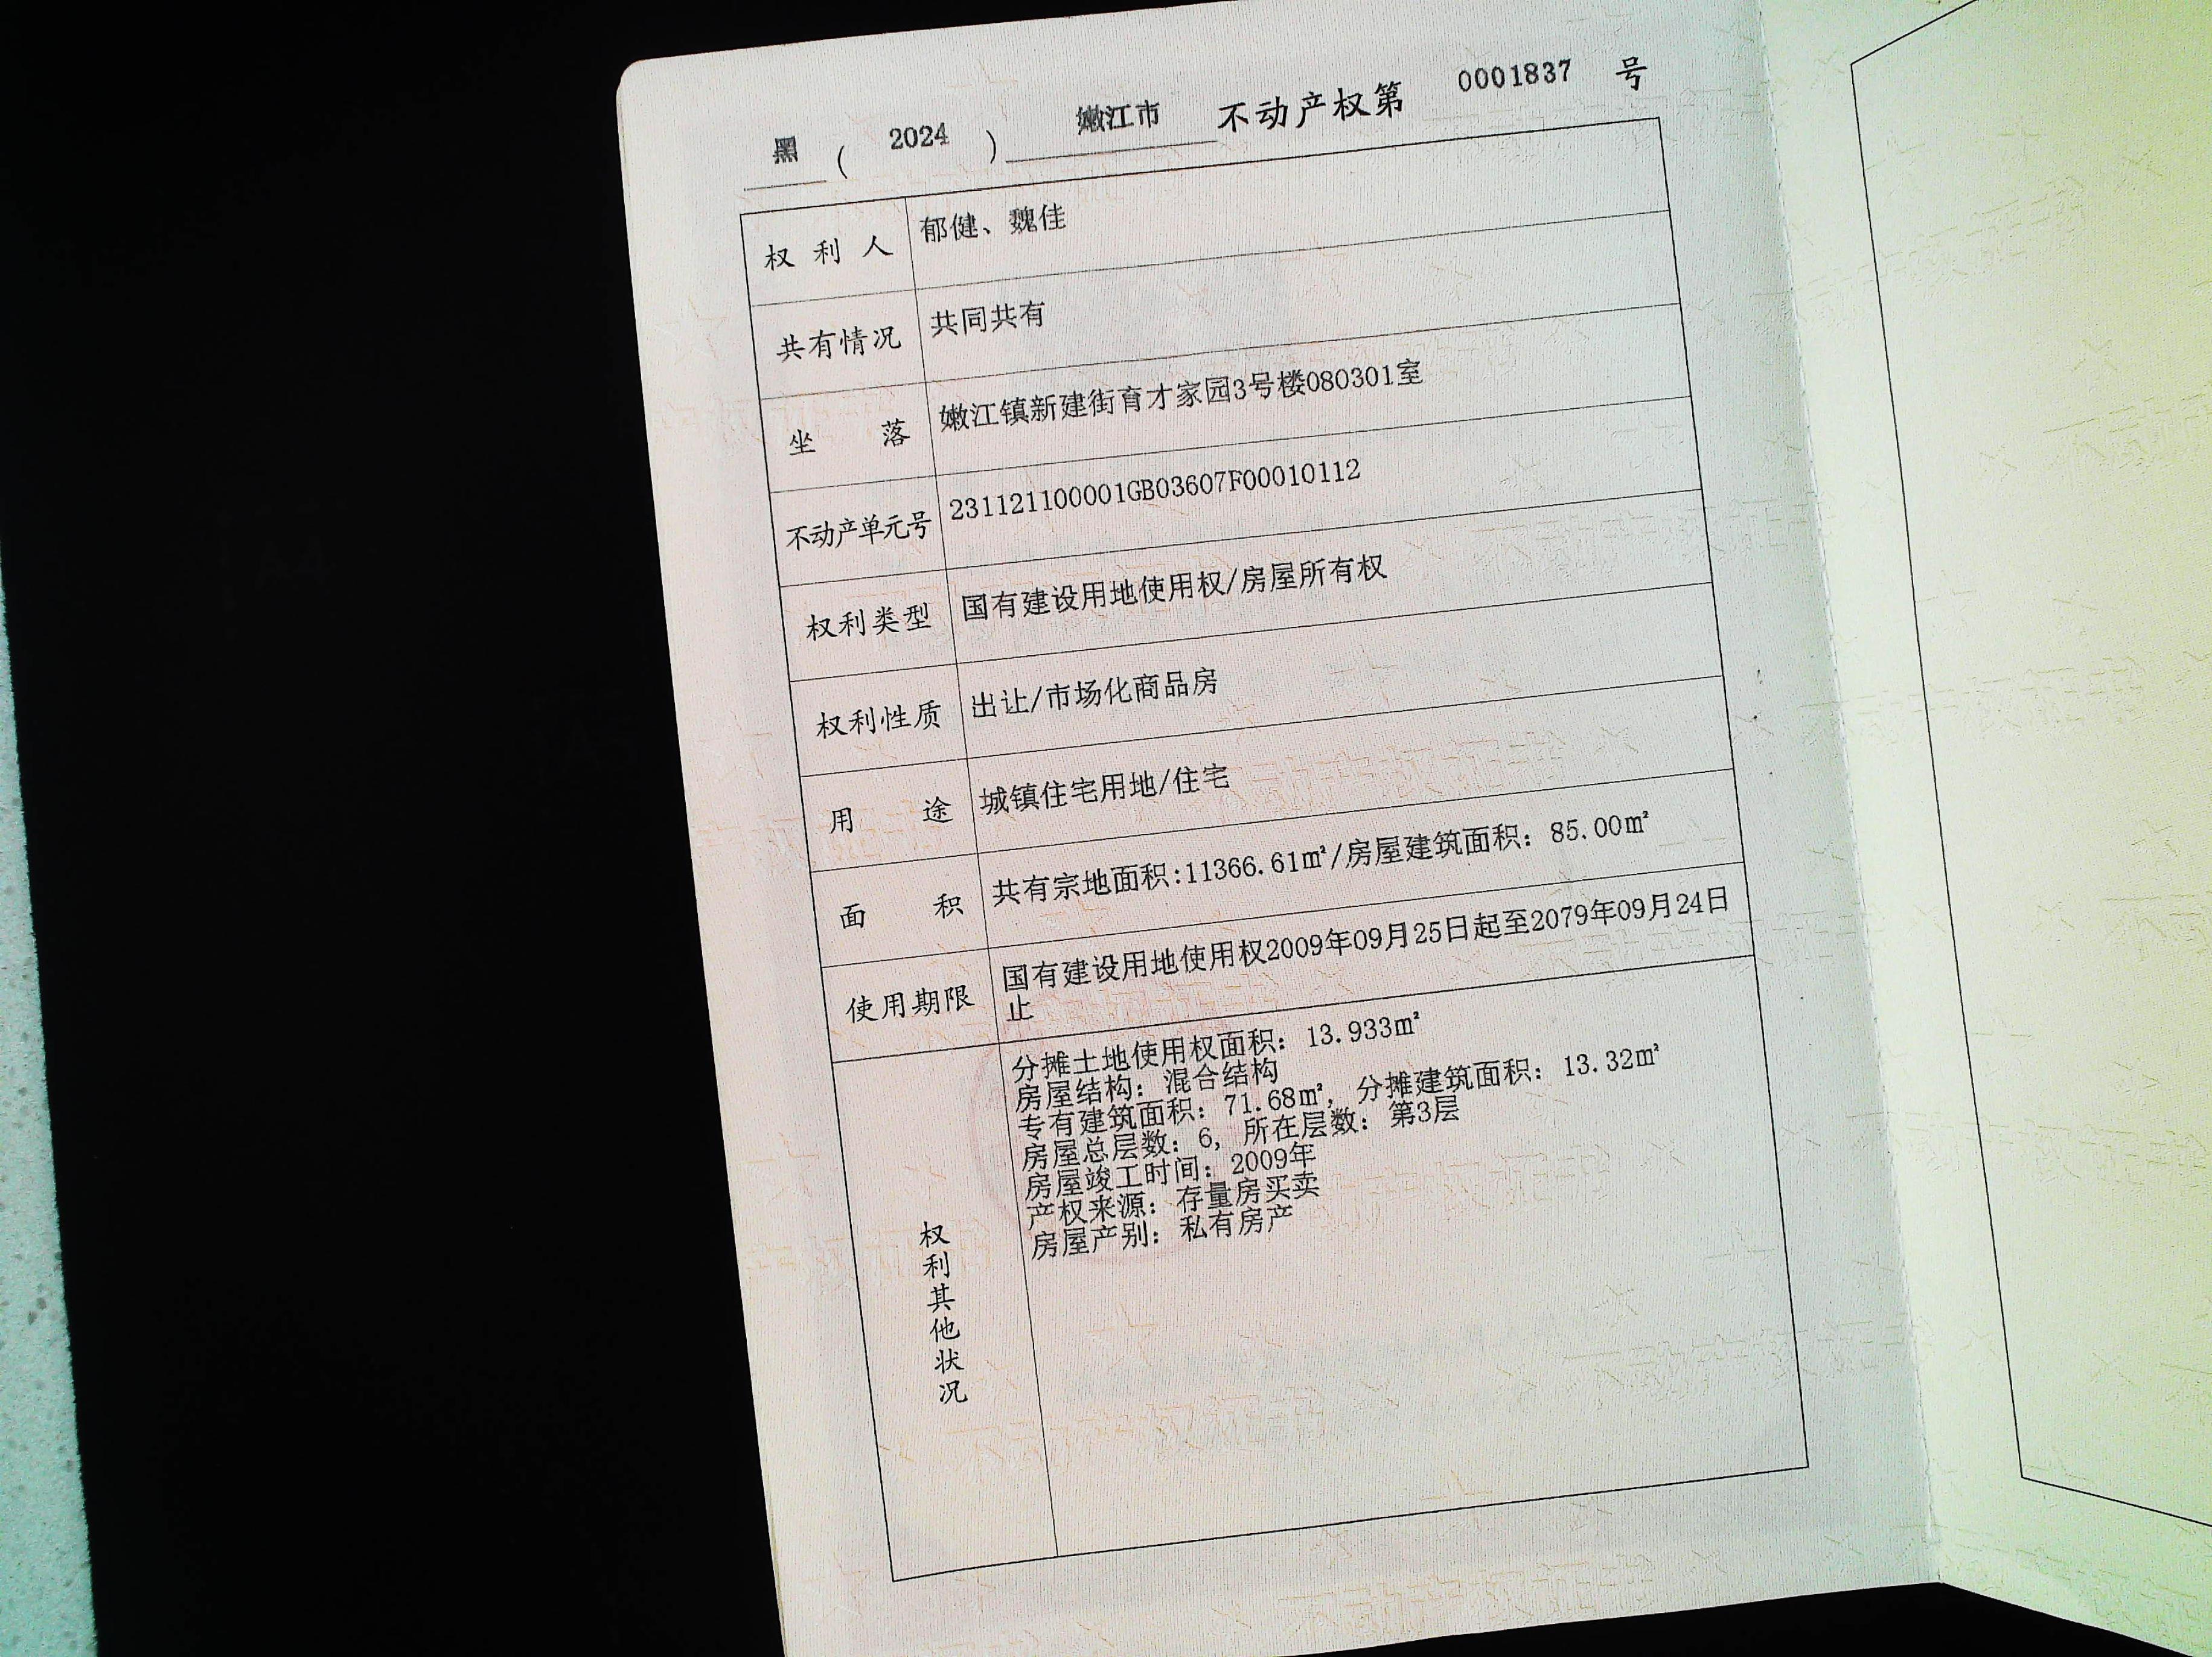 黑 ( 2024 ) 嫩江市 不动产权第 0001837 号
权利人 郁健、魏佳
共有情况 共同共有
坐落 嫩江镇新建街育才家园3号楼080301室
不动产单元号 231121100001GB03607F00010112
权利类型 国有建设用地使用权/房屋所有权
权利性质 出让/市场化商品房
用途 城镇住宅用地/住宅
面积 共有宗地面积:11366.61㎡/房屋建筑面积：85.00㎡
使用期限 国有建设用地使用权2009年09月25日起至2079年09月24日
止
权利其他状况
分摊土地使用权面积：13.933㎡
房屋结构：混合结构
专有建筑面积：71.68㎡，分摊建筑面积：13.32㎡
房屋总层数：6，所在层数：第3层
房屋竣工时间：2009年
产权来源：存量房买卖
房屋产别：私有房产